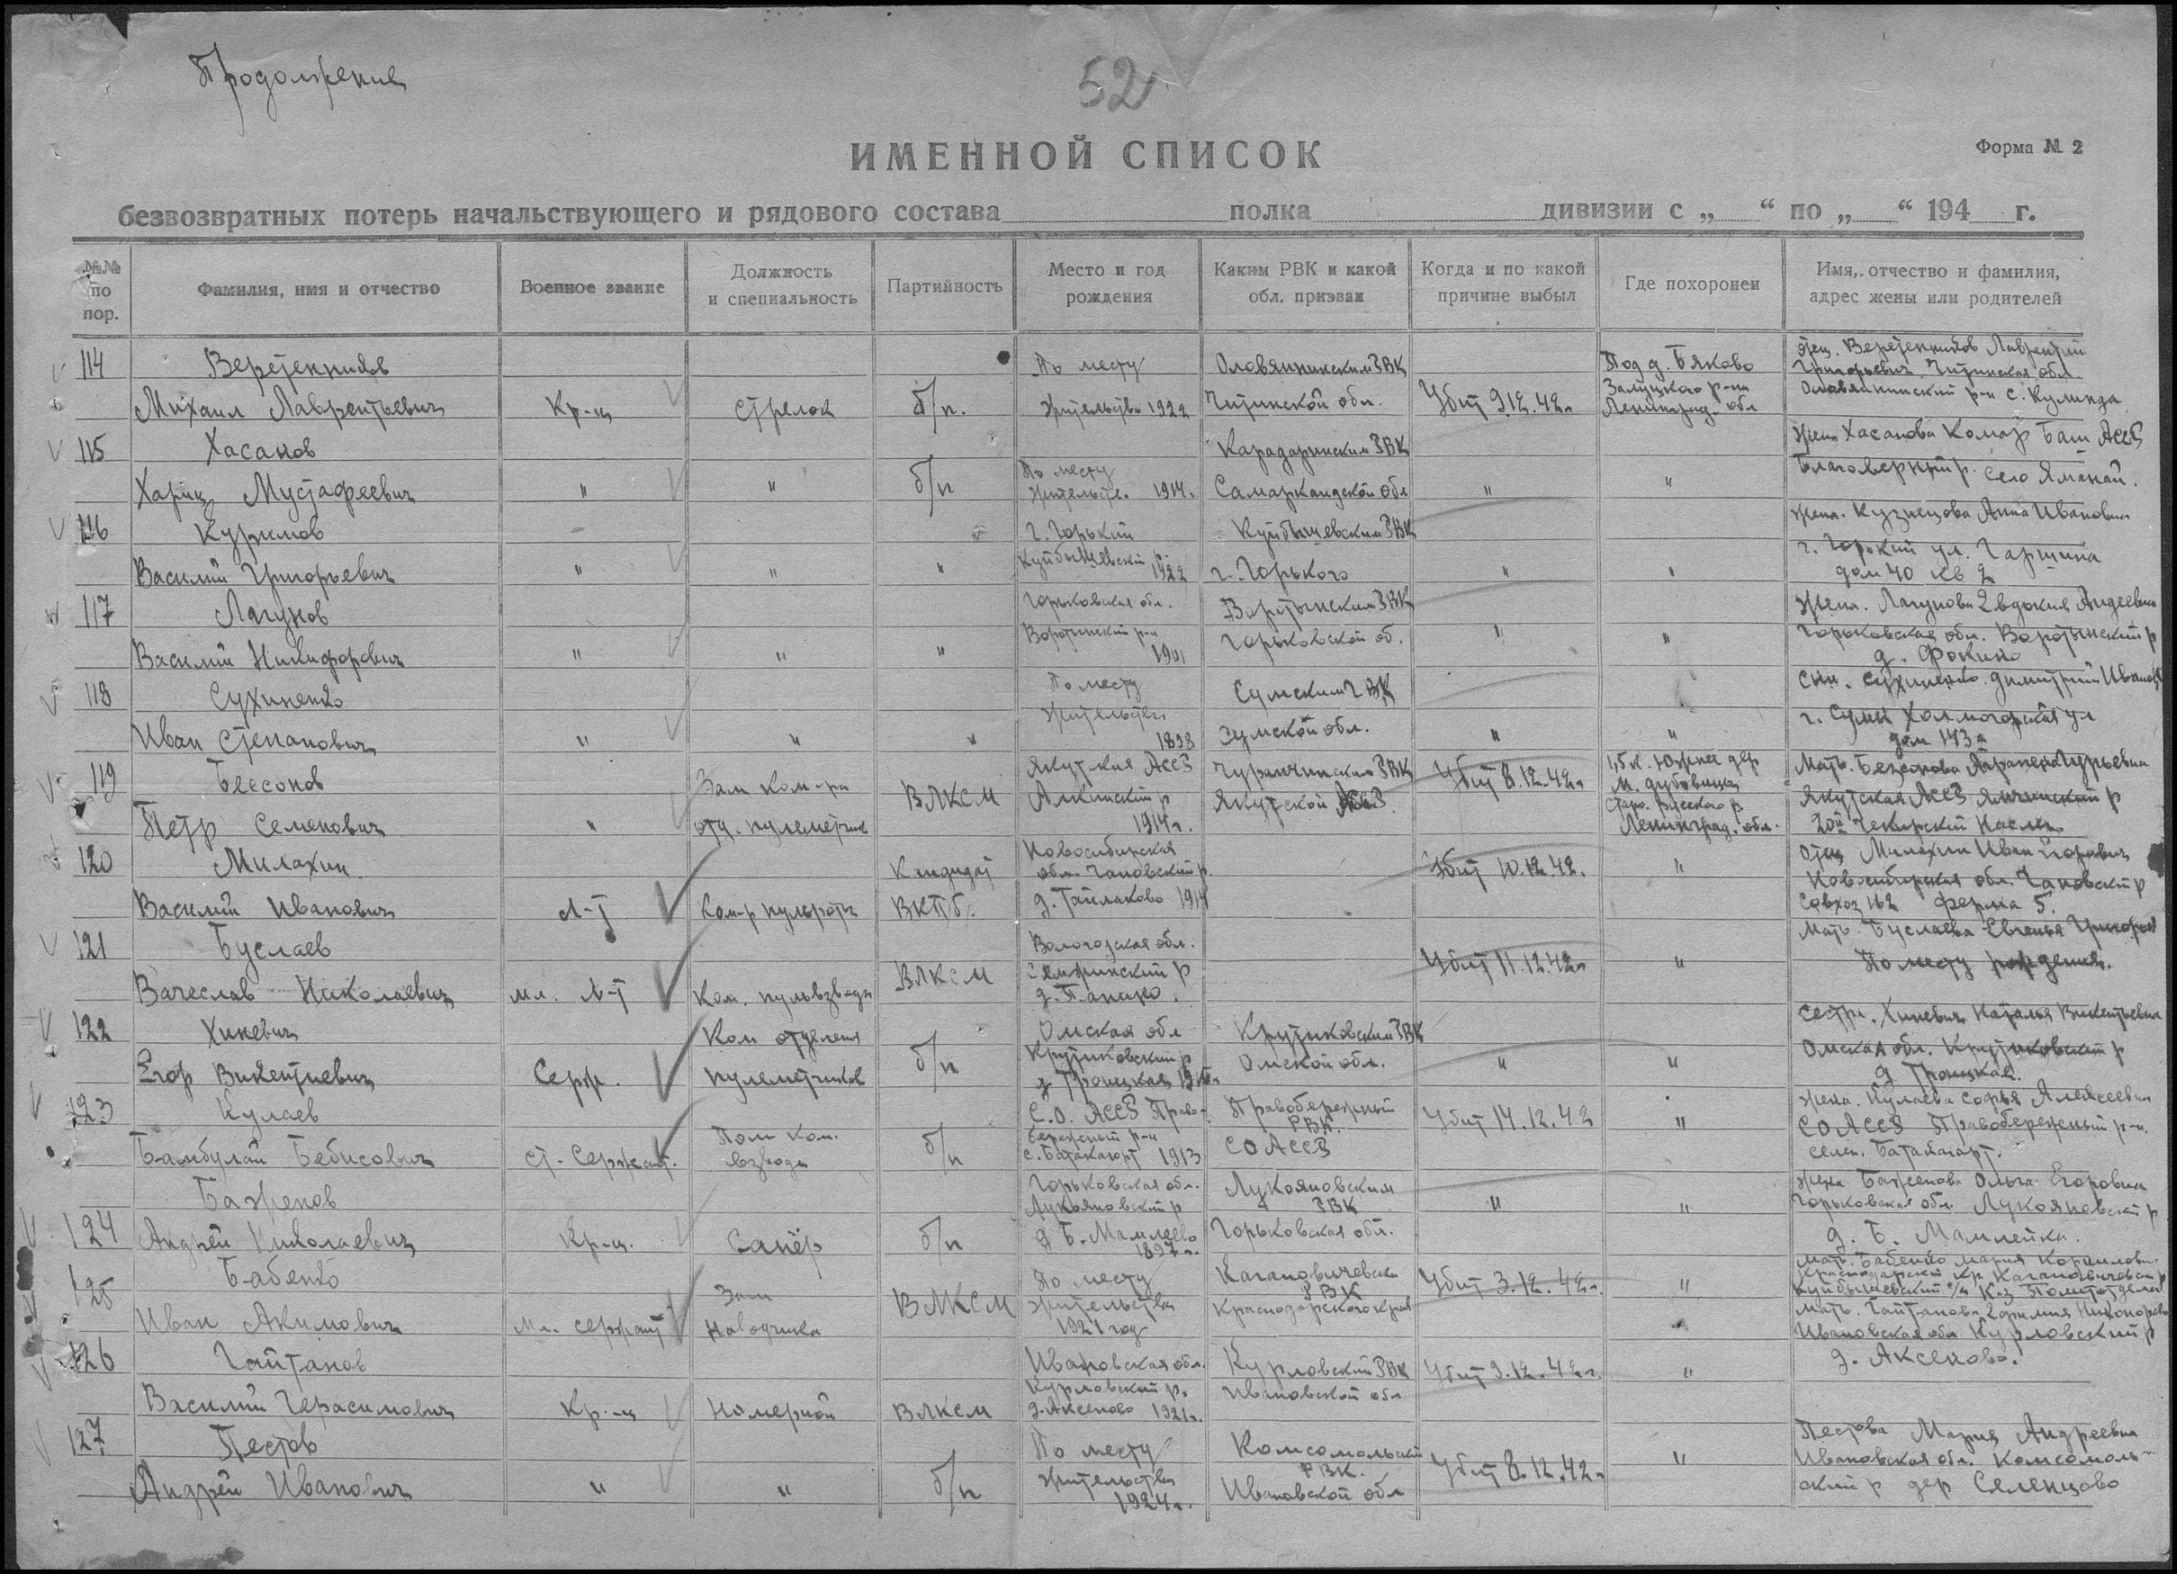 Продолжение
52
ИМЕННОЙ СПИСОК
Форма № 2
безвозвратных потерь начальствующего и рядового состава полка дивизии с „ “ по „ “ 194 г.
№№ по пор.
Фамилия, имя и отчество
Военное звание
Должность и специальность
Партийность
Место и год рождения
Каким РВК и какой обл. призван
Когда и по какой причине выбыл
Где похоронен
Имя, отчество и фамилия, адрес жены или родителей
114
Веретенников
Михаил Лаврентьевич
Кр-ц
стрелок
б/п.
По месту
жительства 1922
Оловяннинским РВК
Читинской обл.
Убит 9.12.42г
Под д. Бяково
Залуцкого р-на
Ленинград. обл
отец. Веретенников Лаврентий
Григорьевич, Читинская обл.
Оловяннинский р-н с. Кулинда
115
Хасанов
Харис Мустафеевич
"
"
б/п
По месту
жительств. 1914г.
Карадарьинским РВК
Самаркандской обл
"
"
жена Хасанова Комар Баш АССР
село Яманай.
116
Куримов
Василий Григорьевич
"
"
"
г. Горький
Куйбышевский р.
1922
Куйбышевским РВК
г. Горького
"
"
жена. Кузнецова Анна Ивановна
г. Горький ул. Гаршина
дом 40 кв 2
117
Лагунов
Василий Никифорович
"
"
"
Горьковская обл.
Воротынский р-н
1901
Воротынским РВК
Горьковской об.
"
"
жена. Лагунова Евдокия Андеевна
Горьковская обл. Воротынский р
д. Фокино
118
Сухиненко
Иван Степанович
"
"
"
По месту
жительства
1898
Сумским ГВК
Сумской обл.
"
"
сын. Сухиненко Димитрий Иванов
г. Сумы Холмогорская ул
дом 143а
119
Бессонов
Петр Семенович
"
Зам ком-ра
отд. пулеметчик
ВЛКСМ
Якутская АССР
1914г.
Чурапчинским РВК
Якутской АССР.
Убит 8.12.42г
1,5 к. Южнее дер
М. Дубовицы
Старо. Русского р.
Ленинград. обл.
Мать. Бессонова
Якутская АССР
120
Милахин
Василий Иванович
л-т
Ком-р пульроты
Кандидат
ВКП/б/.
Новосибирская
обл. Чановский р.
1914
Убит 10.12.42.
"
отец Милахин Иван Егорович
Новосибирская обл. Чановский р
Совхоз 162 ферма 5.
121
Буслаев
Вачеслав Николаевич
мл. л-т
Ком. пульвзвода
ВЛКСМ
Вологодская обл.
д. Панино.
Убит 11.12.42г
"
Мать. Буслаева Евгенья
По месту рождения.
122
Хиневич
Егор Викентиевич
Серж.
Ком отделения
пулеметчиков
б/п
Омская обл
Крутиковский р
д Троицкая
Крутиковским РВК
Омской обл.
"
"
сестра. Хиневич Наталья Викентьевна
Омская обл. Крутиковский р
д Троицкая.
123
Кулаев
Бамбулай Бебисович
ст. Сержант.
Пом ком.
взвода
б/п
С.О. АССР Право-
бережный р-н
с. Батакаюрт 1913
Правобережный
РВК.
СОАССР
Убит 14.12.42
"
жена. Кулаева Софья Алексеевна
СО АССР Правобережный р-н.
124
Баженов
Андрей Николаевич
Кр-ц.
Сапёр
б/п
Горьковская обл.
Лукояновский р
д Б. Мамлеево
1897г.
Лукояновским
РВК
Горьковская обл.
"
"
жена Баженова Ольга Егоровна
Горьковская обл. Лукояновский р
д. Б. Мамлейка.
125
Бабенко
Иван Акимович
Мл. сержант
Зам
наводчика
ВЛКСМ
По месту
жительства
1921 год
Кагановичевски
РВК
Краснодарского края
Убит 3.12.42г.
"
Мать. Бабенко Мария Корниловн.
Краснодарский кр. Кагановичевский р
126
Гайтанов
Василий Герасимович
Кр-ц
Номерной
ВЛКСМ
Ивановская обл.
Курловский р.
д. Аксеново 1921г.
Курловский РВК
Ивановской обл
Убит 9.12.42г.
"
Мать. Гайтанова
Ивановская обл Курловский р
д. Аксеново.
127
Пестов
Андрей Иванович
"
"
б/п
По месту
жительства
1924г.
Комсомольский
РВК.
Ивановской обл
Убит 8.12.42г
"
Пестова Мария Андреевна
Ивановская обл. Комсомоль-
ский р дер Селенцово